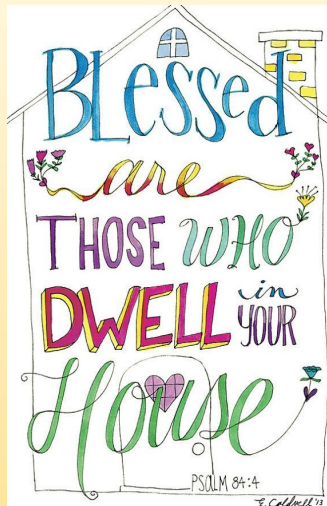 BLessed
are
THOSE WHO
DWELL in YOUR
House
PSALM 84:4
E. Caldwell '13